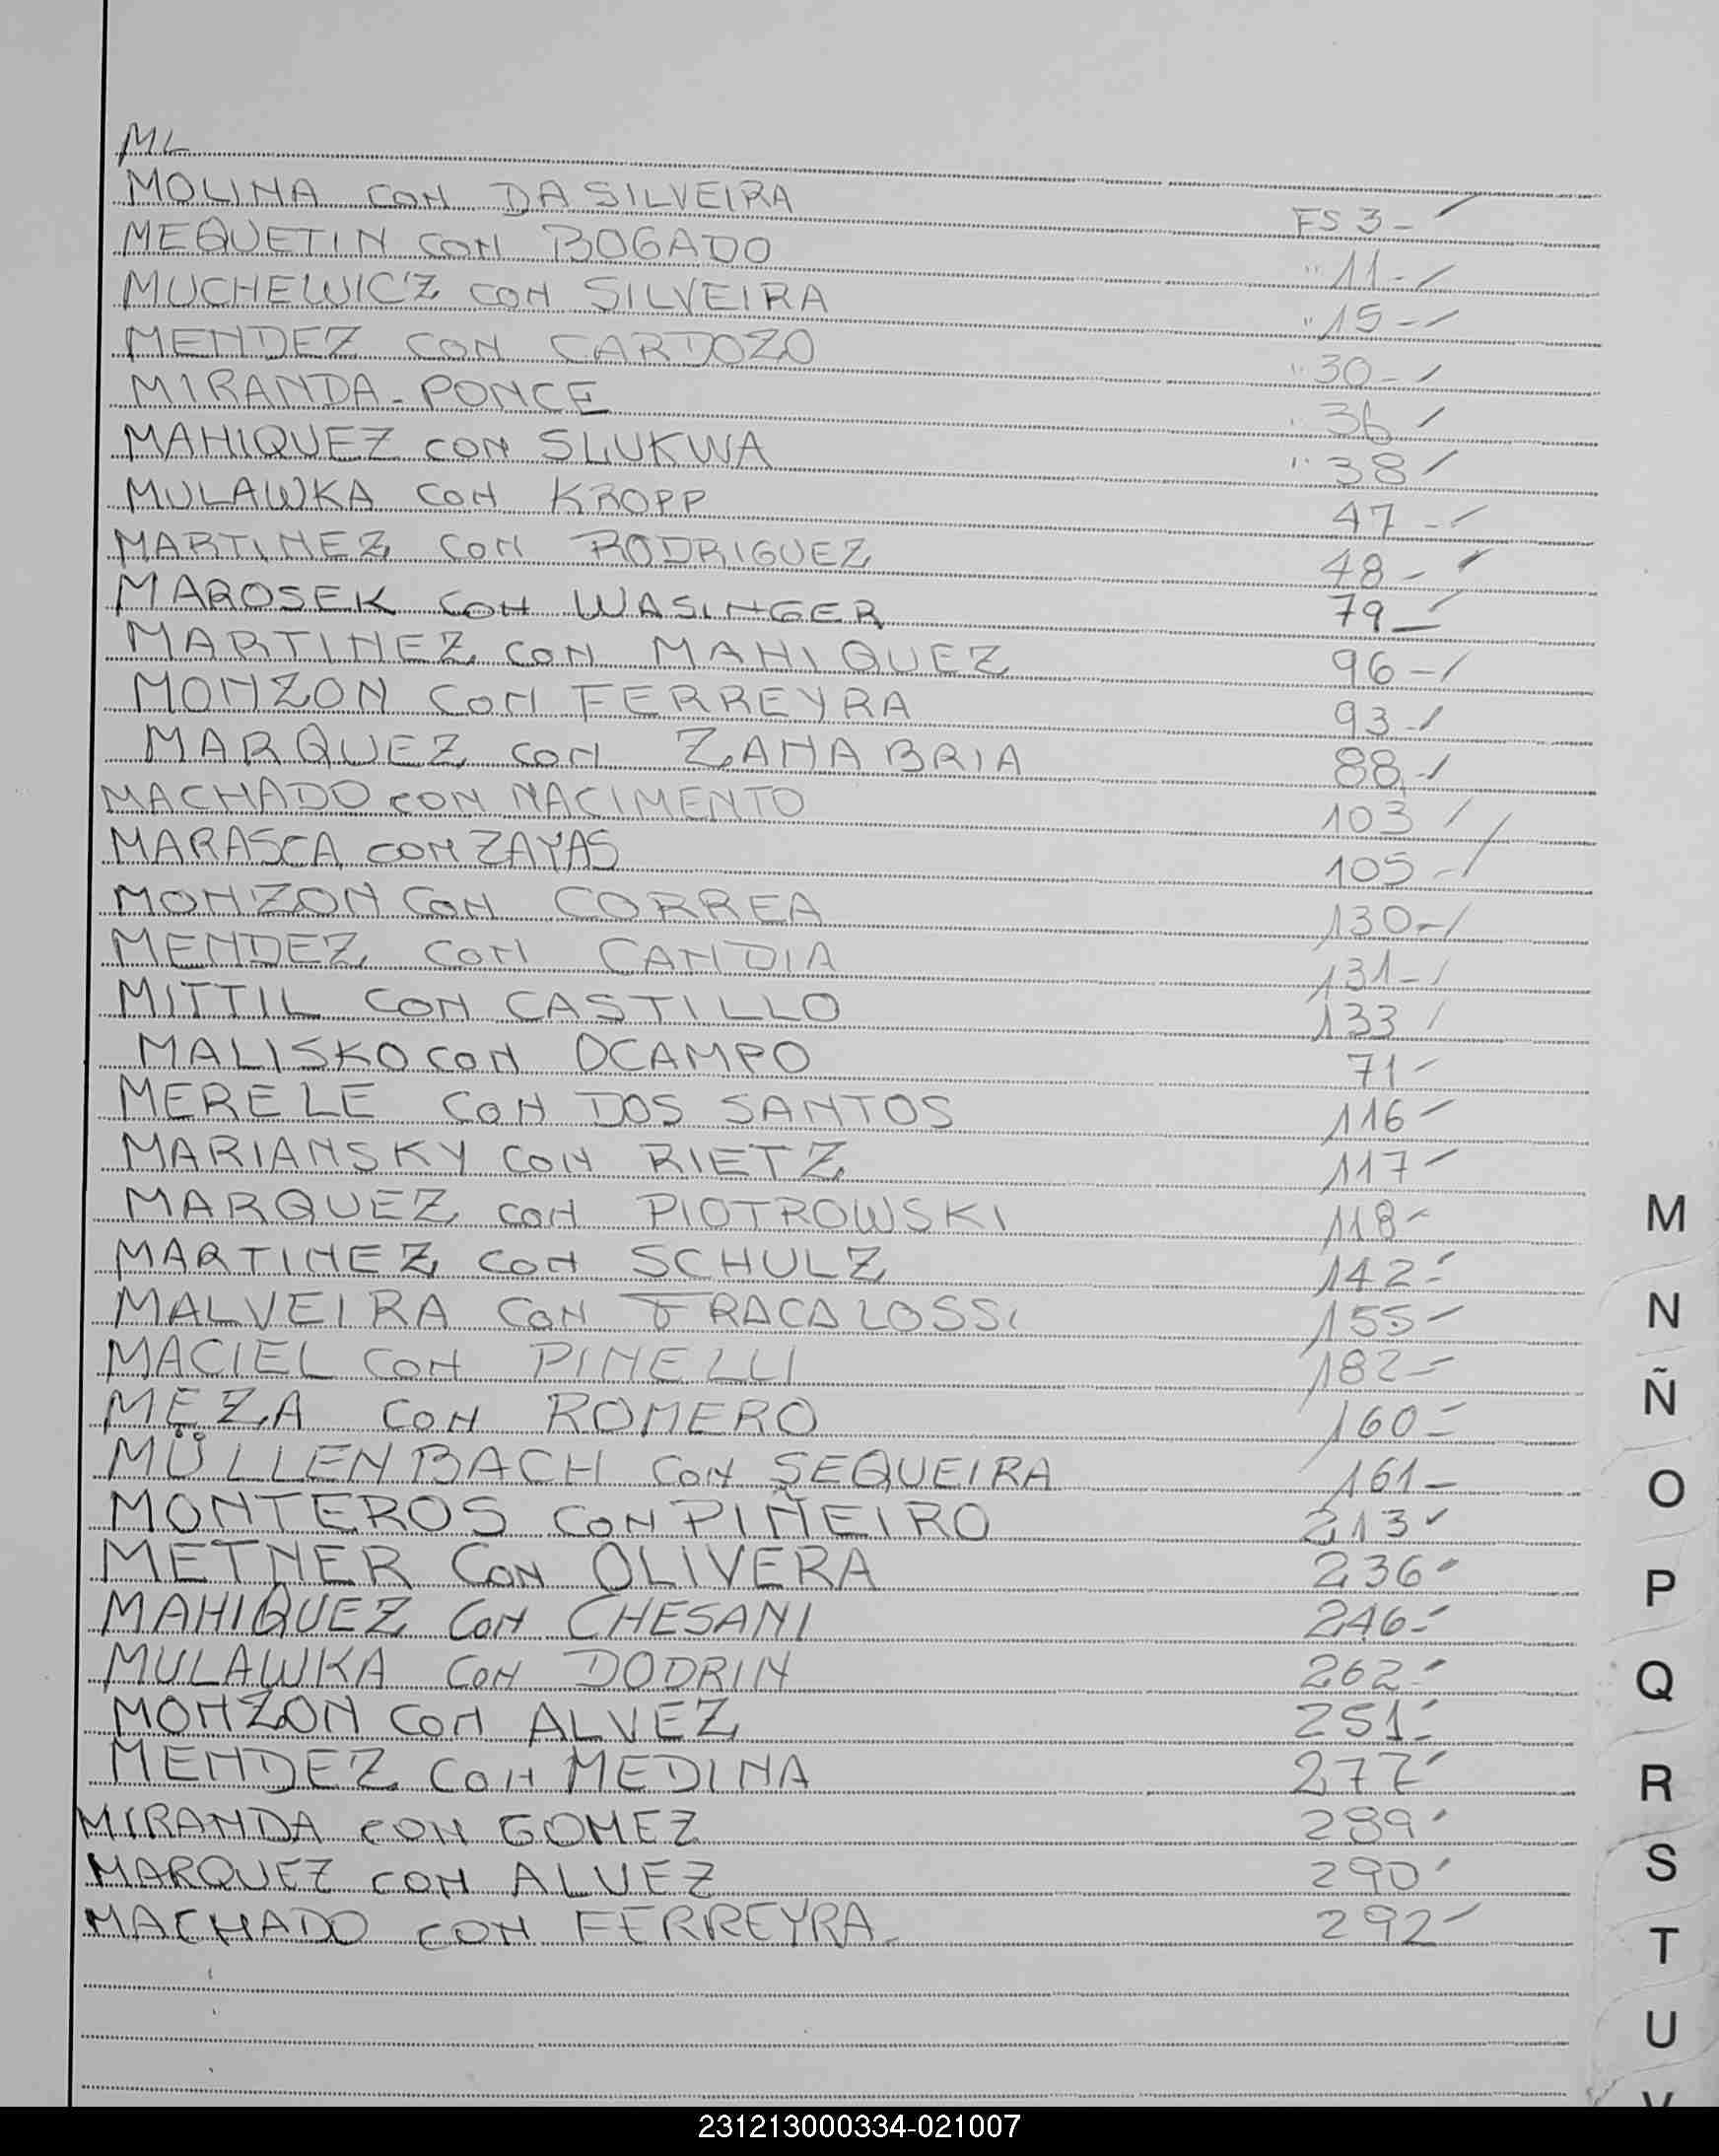 ML
MOLINA CON DA SILVEIRA FS 3-
MEQUETIN CON BOGADO " 11-
MUCHEWICZ CON SILVEIRA " 15-
MENDEZ CON CARDOZO " 30-
MIRANDA - PONCE " 36
MAHIQUEZ CON SLUKWA " 38
MULAWKA CON KROPP 47-
MARTINEZ CON RODRIGUEZ 48-
MAROSEK CON WASINGER 79-
MARTINEZ CON MAHIQUEZ 96-
MONZON CON FERREYRA 93-
MARQUEZ CON ZANABRIA 88-
MACHADO CON NACIMENTO 103
MARASCA CON ZAYAS 105-
MONZON CON CORREA 130-
MENDEZ CON CANDIA 131-
MITTIL CON CASTILLO 133
MALISKO CON OCAMPO 71-
MERELE CON DOS SANTOS 116-
MARIANSKY CON RIETZ 117-
MARQUEZ CON PIOTROWSKI 118-
MARTINEZ CON SCHULZ 142-
MALVEIRA CON FRACALOSSI 155-
MACIEL CON PINELLI 182-
MEZA CON ROMERO 160-
MÜLLENBACH CON SEQUEIRA 161-
MONTEROS CON PIÑEIRO 213
METNER CON OLIVERA 236
MAHIQUEZ CON CHESANI 246-
MULAWKA CON DODRIN 262-
MONZON CON ALVEZ 251-
MENDEZ CON MEDINA 277
MIRANDA CON GOMEZ 289
MARQUEZ CON ALVEZ 290
MACHADO CON FERREYRA 292
M
N
Ñ
O
P
Q
R
S
T
U
V
231213000334-021007